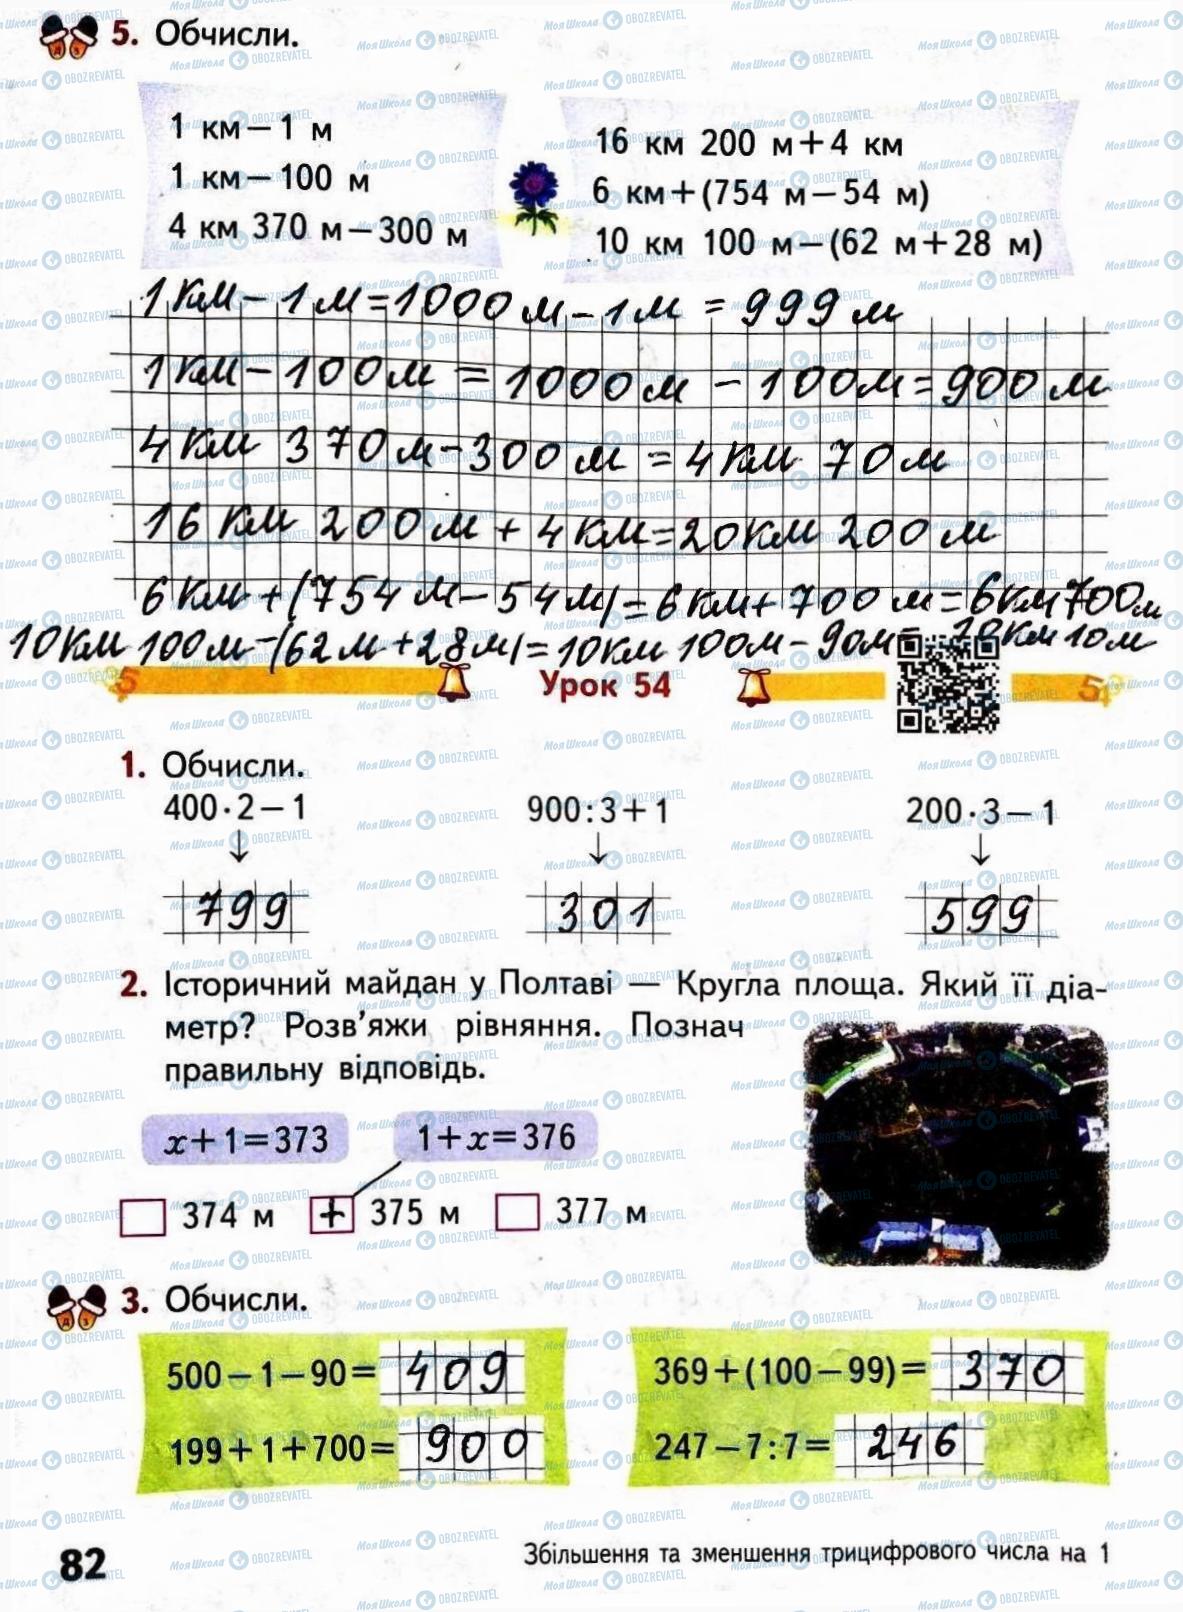 5. Обчисли.
1 км – 1 м
1 км – 100 м
4 км 370 м – 300 м
16 км 200 м + 4 км
6 км + (754 м – 54 м)
10 км 100 м – (62 м + 28 м)
1 км – 1 м = 1000 м – 1 м = 999 м
1 км – 100 м = 1000 м – 100 м = 900 м
4 км 370 м – 300 м = 4 км 70 м
16 км 200 м + 4 км = 20 км 200 м
6 км + (754 м – 54 м) = 6 км + 700 м = 6 км 700 м
10 км 100 м – (62 м + 28 м) = 10 км 100 м – 90 м = 10 км 10 м
Урок 54
1. Обчисли.
400 · 2 – 1 900 : 3 + 1 200 · 3 – 1
799 301 599
2. Історичний майдан у Полтаві — Кругла площа. Який її діа-
метр? Розв’яжи рівняння. Познач
правильну відповідь.
x + 1 = 373 1 + x = 376
374 м + 375 м 377 м
3. Обчисли.
500 – 1 – 90 = 409
199 + 1 + 700 = 900
369 + (100 – 99) = 370
247 – 7 : 7 = 246
82 Збільшення та зменшення трицифрового числа на 1
МояШкола OBOZREVATEL